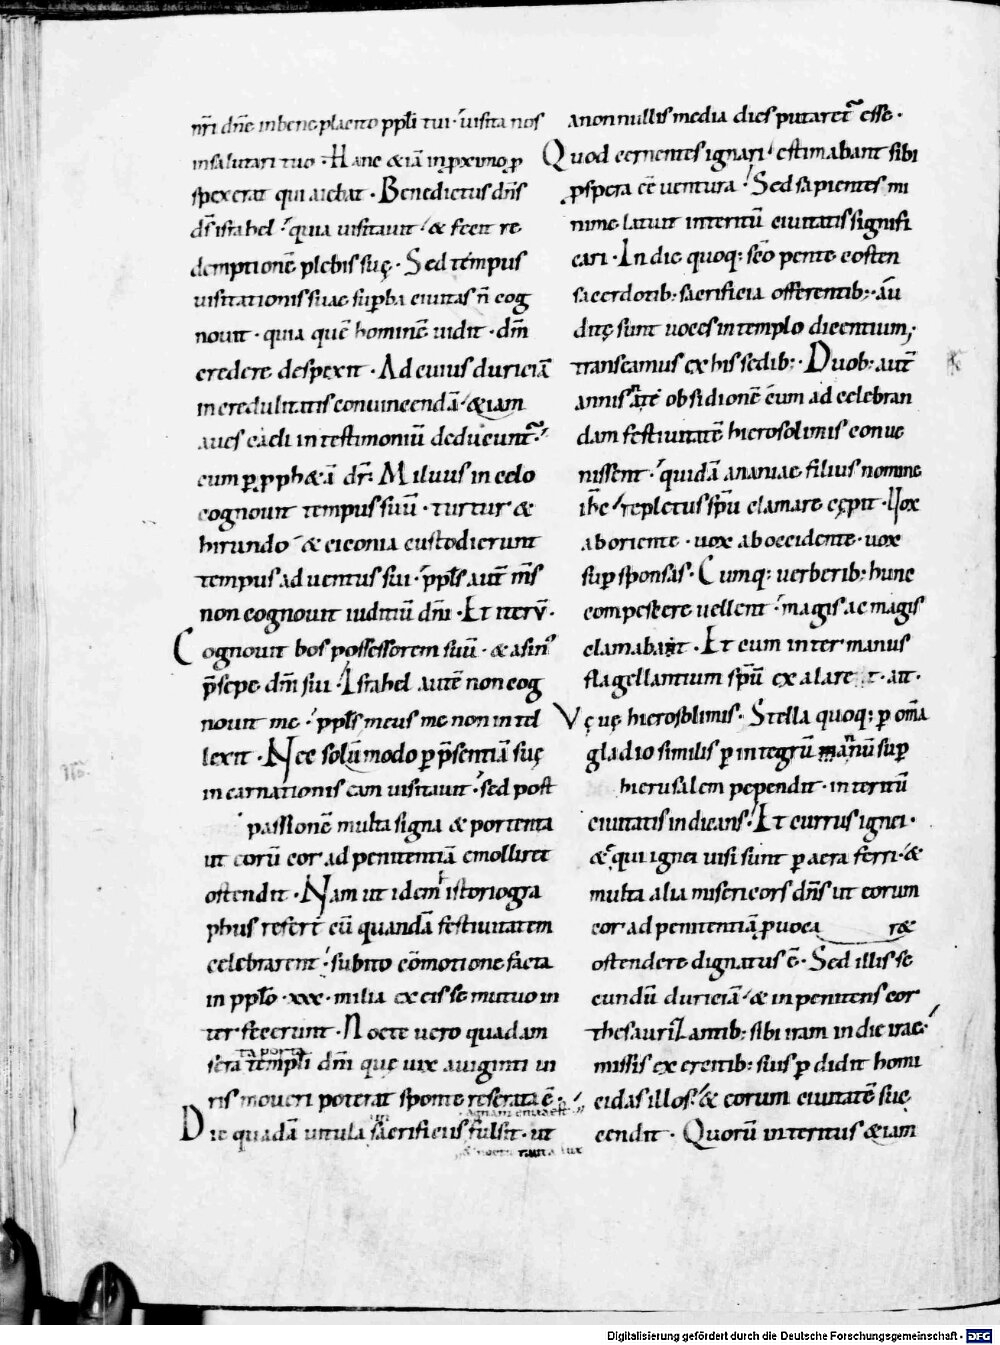 nr̄i dn̄e in bene placito ppl̄i tui · uisita nos
in salutari tuo · Hanc & iā in ꝓximo ꝓ
spexerat qui aiebat · Benedictus dn̄s
ds̄ israhel · quia uisitauit · & fecit re
demptionē plebis suę · Sed tempus
uisitationis suae suꝑba ciuitas n̄ cog
nouit · quia quē hominē uidit · dn̄m
credere despexit · Ad cuius duriciā
incredulitatis conuincendā · & iam
aues caeli in testimoniū deducunt᷒ ·
cum ꝑ ꝓph&ā dr̄: Miluus in celo
cognouit tempus suū · turtur &
hirundo & ciconia custodierunt
tempus aduentus sui · ppl̄s aut̄ m̄s
non cognouit iuditiū dn̄i · Et iterū ·
Cognouit bos possessorem suū · & asin᷒
p̄sepe dn̄i sui · Israhel autē non cog
nouit me · ppl̄s meus me non intel
lexit · Nec solū modo ꝑ p̄sentiā suę
incarnationis eam uisitauit · sed post
passionē multa signa & portenta
ut eorū cor ad penitentiā emolliret
ostendit · Nam ut idem historiogra
phus refert cū quandā festiuitatem
celebrarent · subito cōmotione facta
in ppl̄o · xxx · milia ex eis se mutuo in
terfecerunt · Nocte uero quadam
ta porta
sera templi dn̄i quę uix a uiginti ui
ris moueri poterat sponte reserata ē ·
agnam enixa est
Die quadā uitula sacrificiis fulsit · ut
& nocte tanta lux
a nonnullis media dies putaret᷒ esse ·
Quod cernentes ignari estimabant sibi
ꝓspera eē uentura · Sed sapientes mi
nime latuit interitū ciuitatis signifi
cari · In die quoq: sc̄o pentecosten
sacerdotib: sacrificia offerentib: · au
ditę sunt uoces in templo dicentium;
transeamus ex his sedib: · Duob: aut̄
annis ante obsidionē cum ad celebran
dam festiuitatē hierosolimis conue
nissent · quidā ananiae filius nomine
ih̄c repletus sp̄u clamare cępit · Uox
ab oriente · uox ab occidente · uox
suꝑ sponsas · Cumq: uerberib: hunc
compescere uellent · magis ac magis
clamabant · Et cum inter manus
flagellantium sp̄ū exalaret · ait ·
Vę uę hierosolimis · Stella quoq: ꝑ om̄a
gladio similis ꝑ integrū annū suꝑ
hierusalem pependit · interitū
ciuitatis indicans · Et currus ignei ·
& qui ignei uisi sunt ꝑ aera ferri · &
multa alia misericors dn̄s ut eorum
cor ad penitentiā ꝓuoca r&
ostendere dignatus ē · Sed illis se
cundū duriciā · & inpenitens cor
thesaurizantib: sibi iram in die irae ·
missis exercitib: suis ꝑdidit homi
cidas illos · & eorum ciuitatē suc
cendit · Quorū interitus & iam
Digitalisierung gefördert durch die Deutsche Forschungsgemeinschaft - DFG